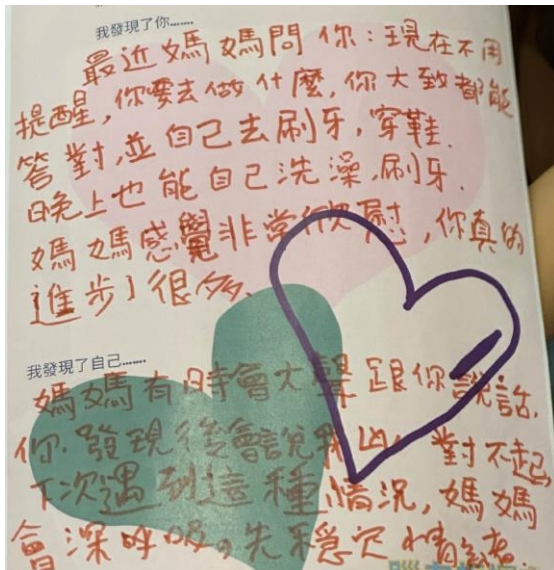 我發現了你.......
最近媽媽問你:現在不用
提醒,你要去做什麼,你大致都能
答對,並自己去刷牙,穿鞋.
晚上也能自己洗澡,刷牙.
媽媽感覺非常欣慰,你真的
進步了很多.
我發現了自己.......
媽媽有時會大聲跟你說話,
你發現後會說我凶,對不起,
下次遇到這種情況,媽媽
會深呼吸。先穩定情緒